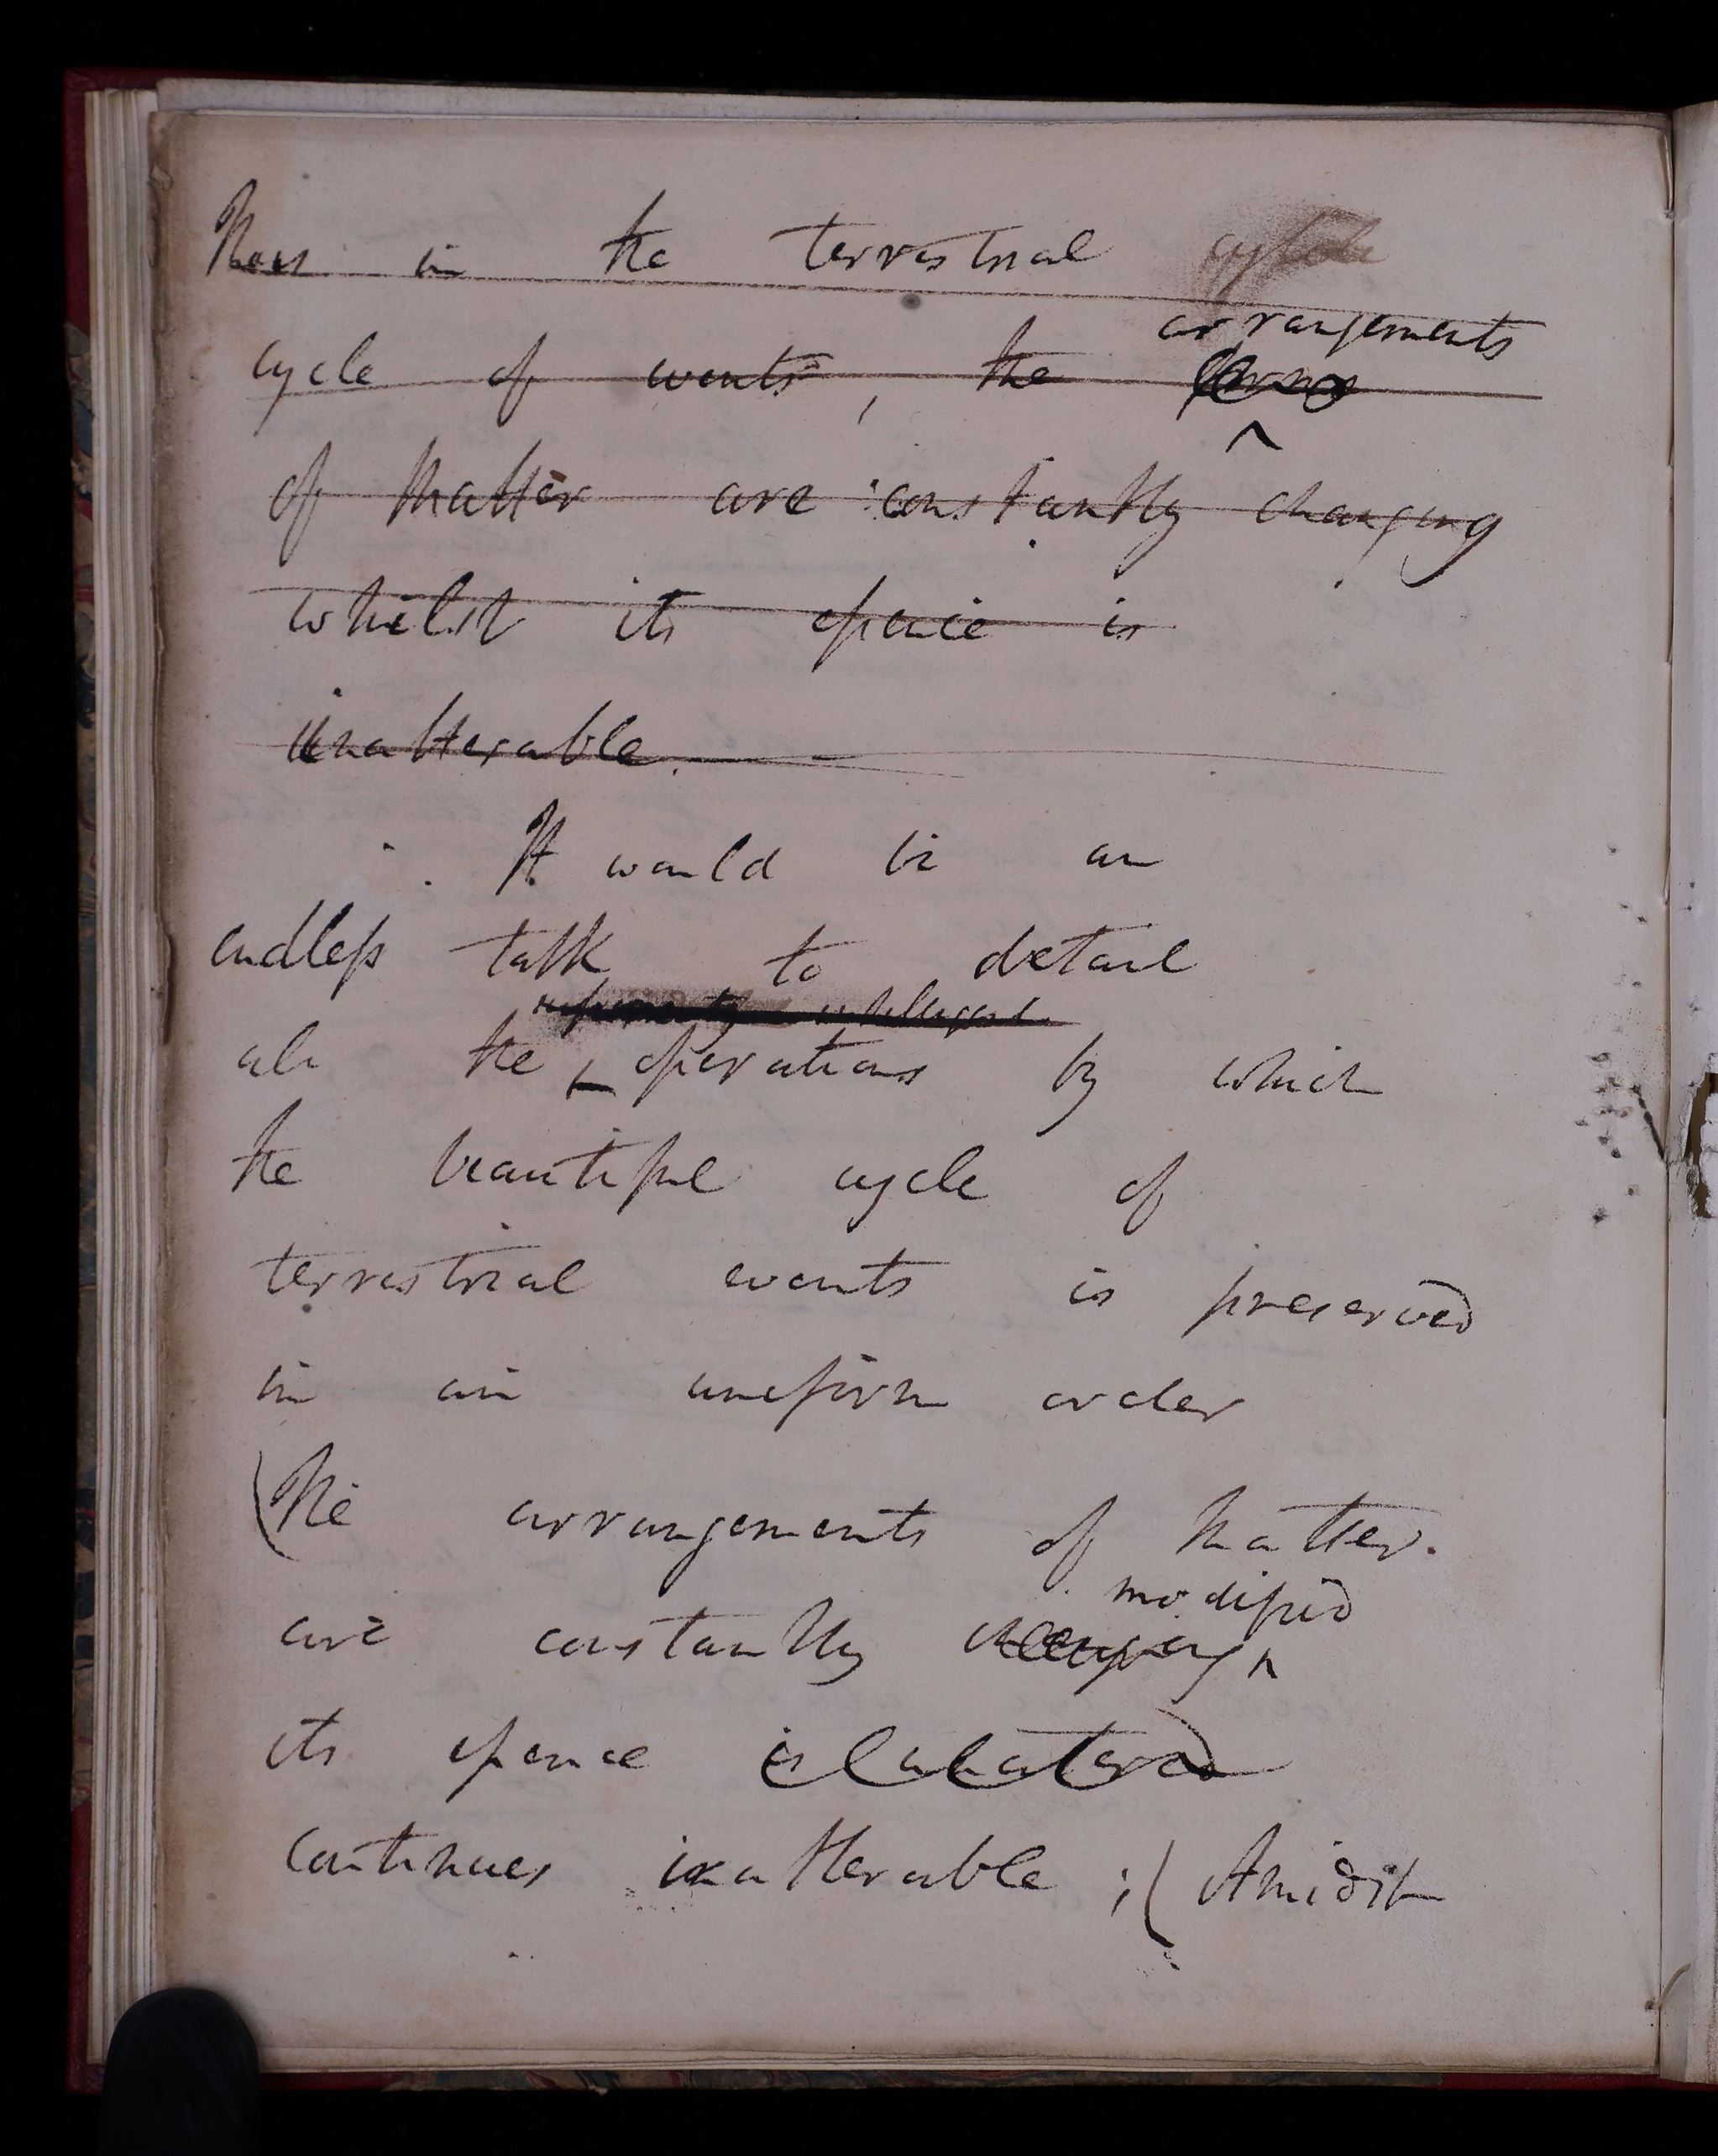 Thus in the terrestrial
cycle of events, the
arrangements
of Matter are constantly changing
whilst its essence is
unalterable.
It would be an
endless task to detail
all the operations by which
the beautiful cycle of
terrestrial events is preserved
in an uniform order
(The arrangements of Matter.
are constantly changing
modified
its essence is unaltered
continues inalterable ;( Amidst